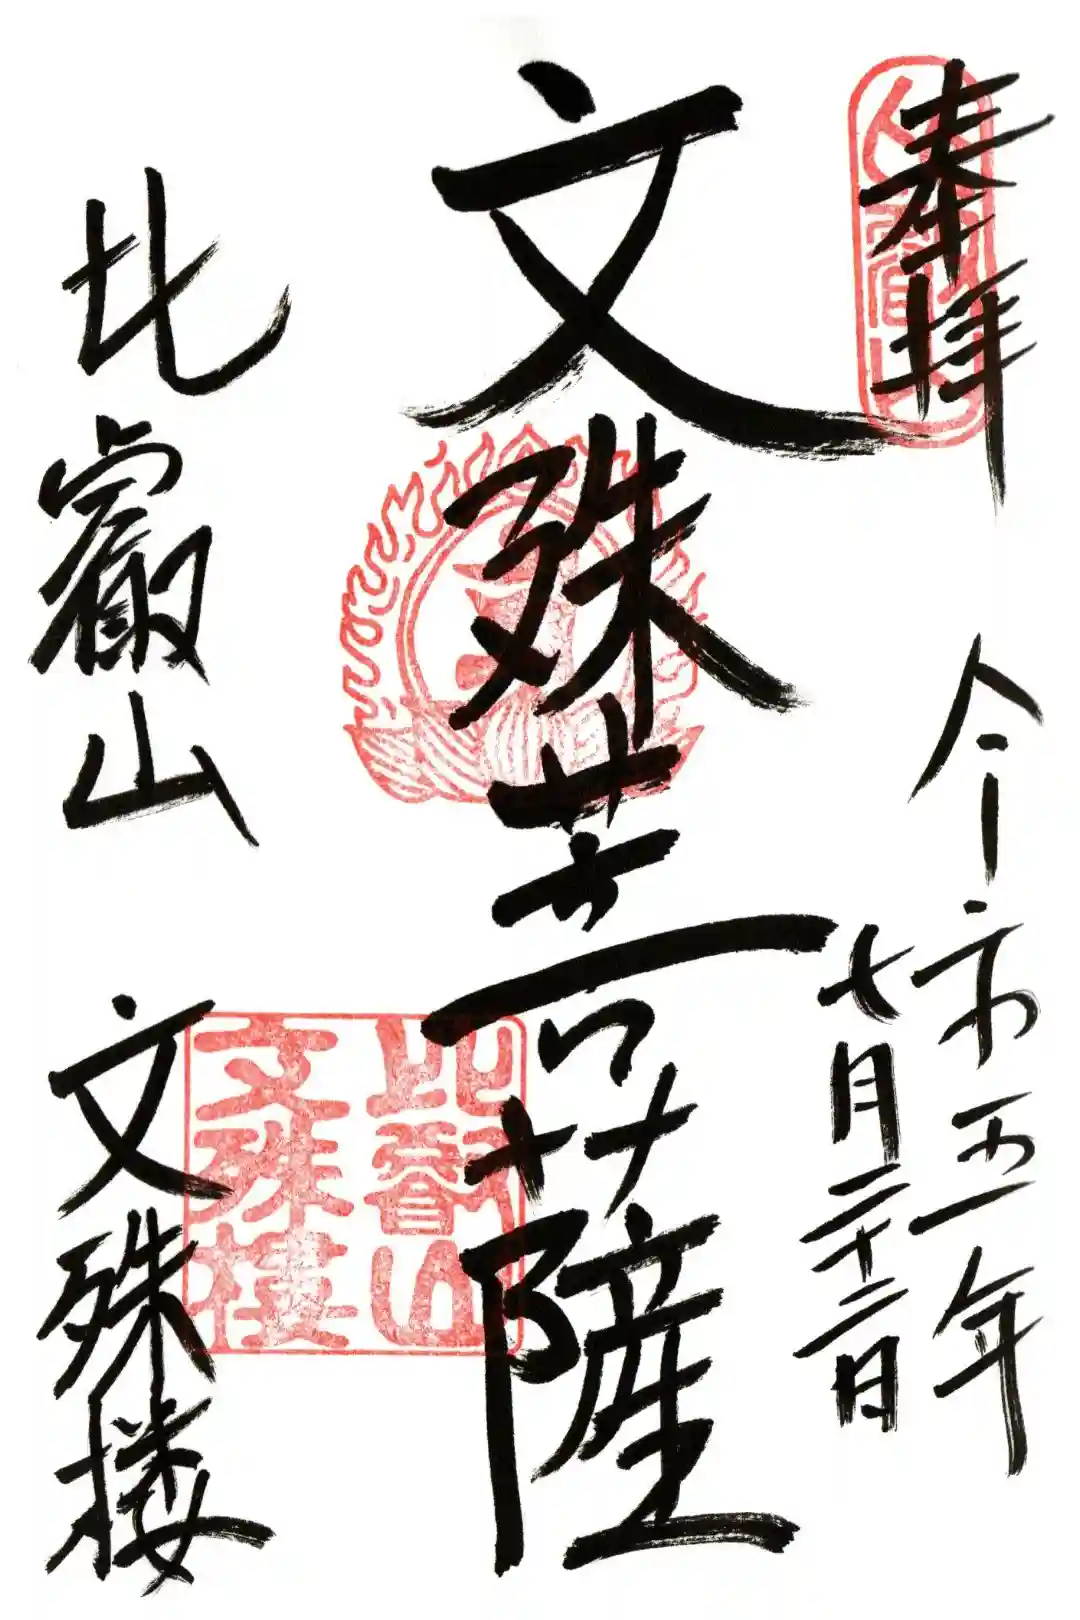 奉拝
令和五年
七月二十二日
文殊菩薩
比叡山
文殊楼
比叡山
文殊樓